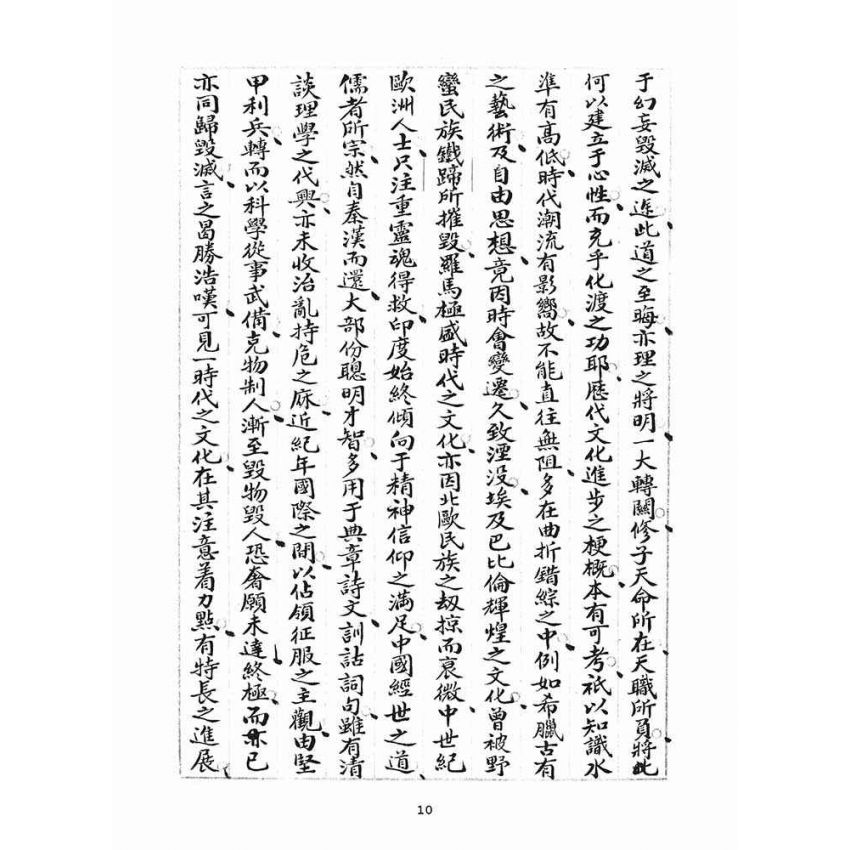 于幻妄毀滅之途此道之至晦亦理之將明一大轉關修子天命所在天職所負將此
何以建立于心性而充乎化渡之功耶歷代文化進步之梗概本有可考祇以知識水
準有高低時代潮流有影嚮故不能直往無阻多在曲折錯綜之中例如希臘古有
之藝術及自由思想竟因時會變遷久致湮沒埃及巴比倫輝煌之文化曾被野
蠻民族鐵蹄所摧毀羅馬極盛時代之文化亦因北歐民族之刼掠而衰微中世紀
歐洲人士只注重靈魂得救印度始終傾向于精神信仰之滿足中國經世之道
儒者所宗然自秦漢而還大部份聰明才智多用于典章詩文訓詁詞句雖有清
談理學之代興亦未收治亂持危之庥近紀年國際之間以佔領征服之主觀由堅
甲利兵轉而以科學從事武備克物制人漸至毀物毀人恐奢願未達終極而亦已
亦同歸毀滅言之曷勝浩嘆可見一時代之文化在其注意着力點有特長之進展
10